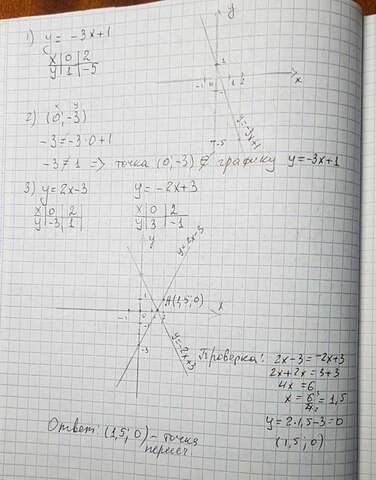 1) y = -3x+1
y
x | 0 | 2
y | 1 | -5
1
-1 0 1 2
x
-5
y=-3x+1
2) (0, -3)
x y
-3 = -3·0+1
-3 ≠ 1 => точка (0,-3) ∉ графику y=-3x+1
3) y = 2x-3
y = -2x+3
x | 0 | 2
y | -3 | 1
x | 0 | 2
y | 3 | -1
y
y=2x-3
A(1,5; 0)
x
1
-1 0 1 2
-1
-3
y=-2x+3
Проверка: 2x-3 = -2x+3
2x+2x = 3+3
4x = 6
x = 6/4 = 1,5
y = 2·1,5-3=0
(1,5; 0)
Ответ: (1,5; 0) - точка
пересеч